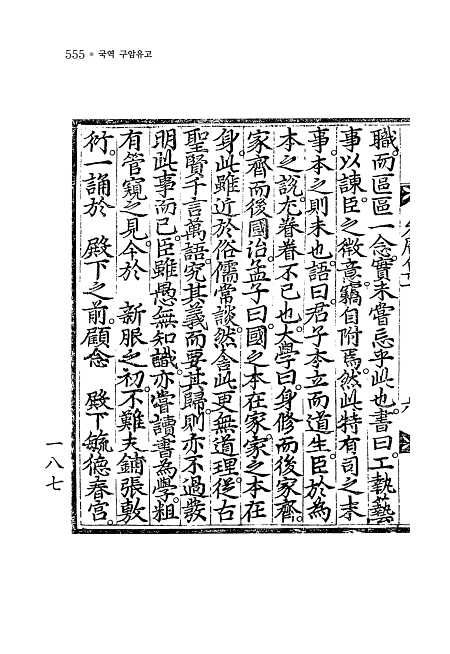 555 * 국역 구암유고
職而區區一念實未嘗忘乎此也書曰工執藝
事以諫臣之微意竊自附焉然此特有司之末
事本之則末也語曰君子本立而道生臣於爲
本之說尤眷眷不已也大學曰身修而後家齊
家齊而後國治孟子曰國之本在家家之本在
身此雖近於俗儒常談然舍此更無道理從古
聖賢千言萬語究其義而要其歸則亦不過發
明此事而已臣雖愚無知識亦嘗讀書為學粗
有管窺之見今於 新服之初不難夫鋪張敷
衍一誦於 殿下之前顧念 殿下毓德春宮
一八七